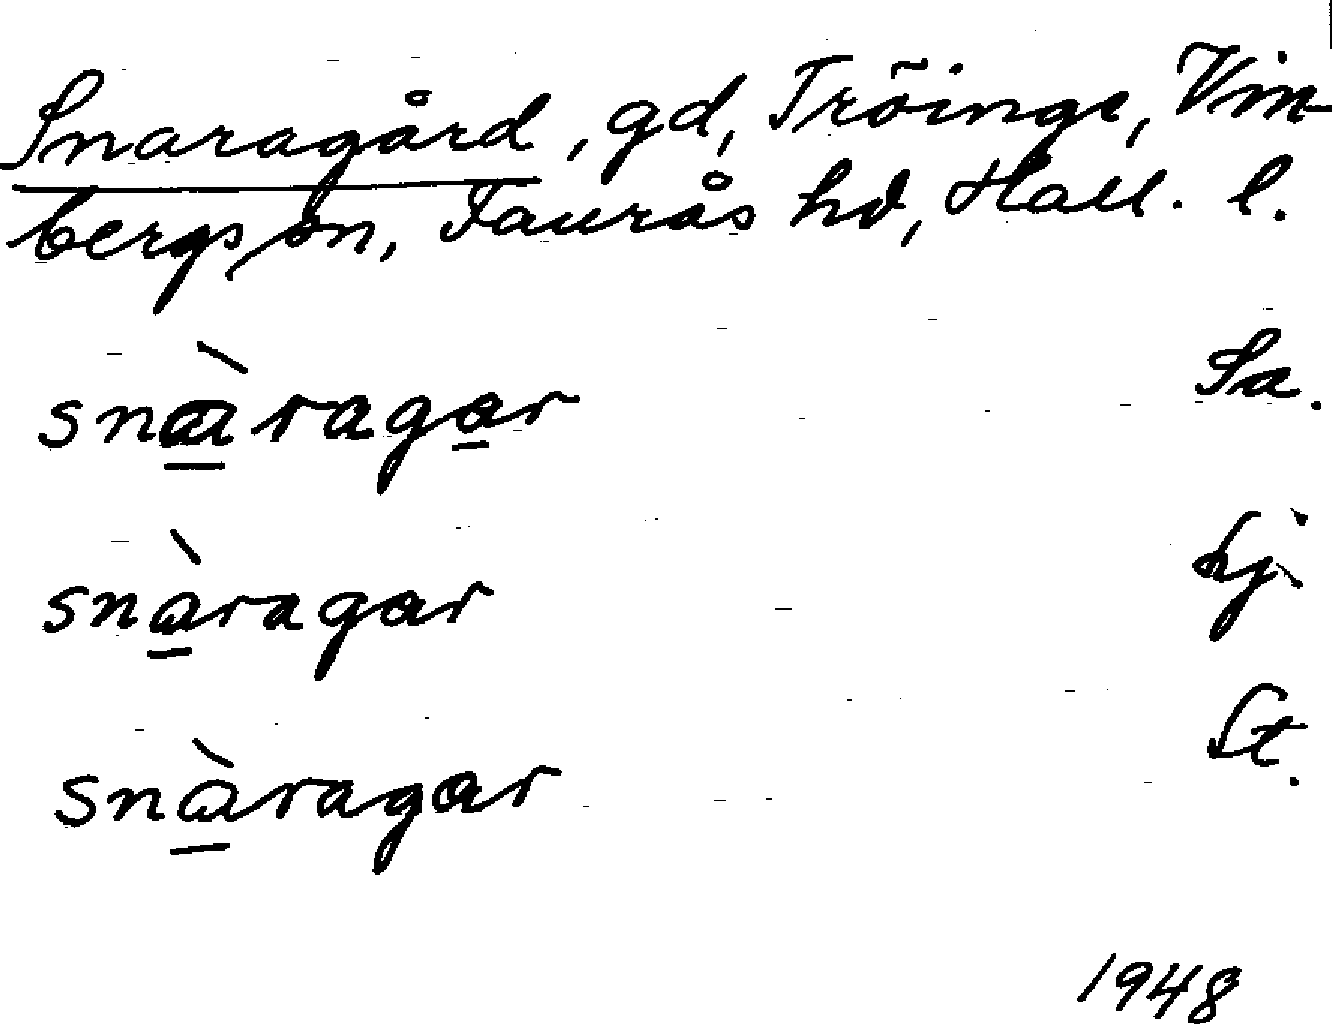 Snaragård, gd, Tröinge, Vin-
bergs sn, Faurås hd, Hall. l.
snàragar Sa.
snàragar Lj.
snàragar St.
1948